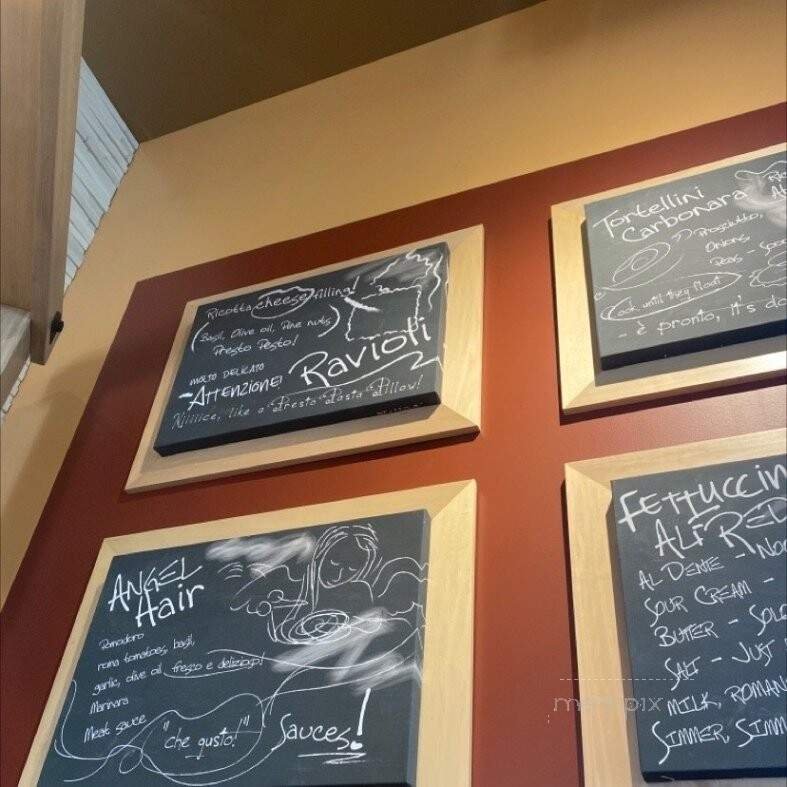 Ricotta cheese filling!
Basil, Olive oil, Pine nuts
Presto Pesto!
Ravioli
MOLTO DELICATO
-ATTENZIONE!
Niiiice, like a Presto Pasta Pillow!
Tortellini
Carbonara
Prosciutto,
Onions,
Peas -
Cook until they float
- è pronto, It's do
ANGEL
Hair
Pomodoro
roma tomatoes, basil,
garlic, olive oil fresco e delizioso!
Marinara
Meat sauce
"che gusto!"
Sauces!
FETTUCCIN
ALFRED
AL DENTE - NOO
SOUR CREAM -
BUTTER - SOLO
SALT - JUST
MILK, ROMAN
SIMMER, SIMM
menupix